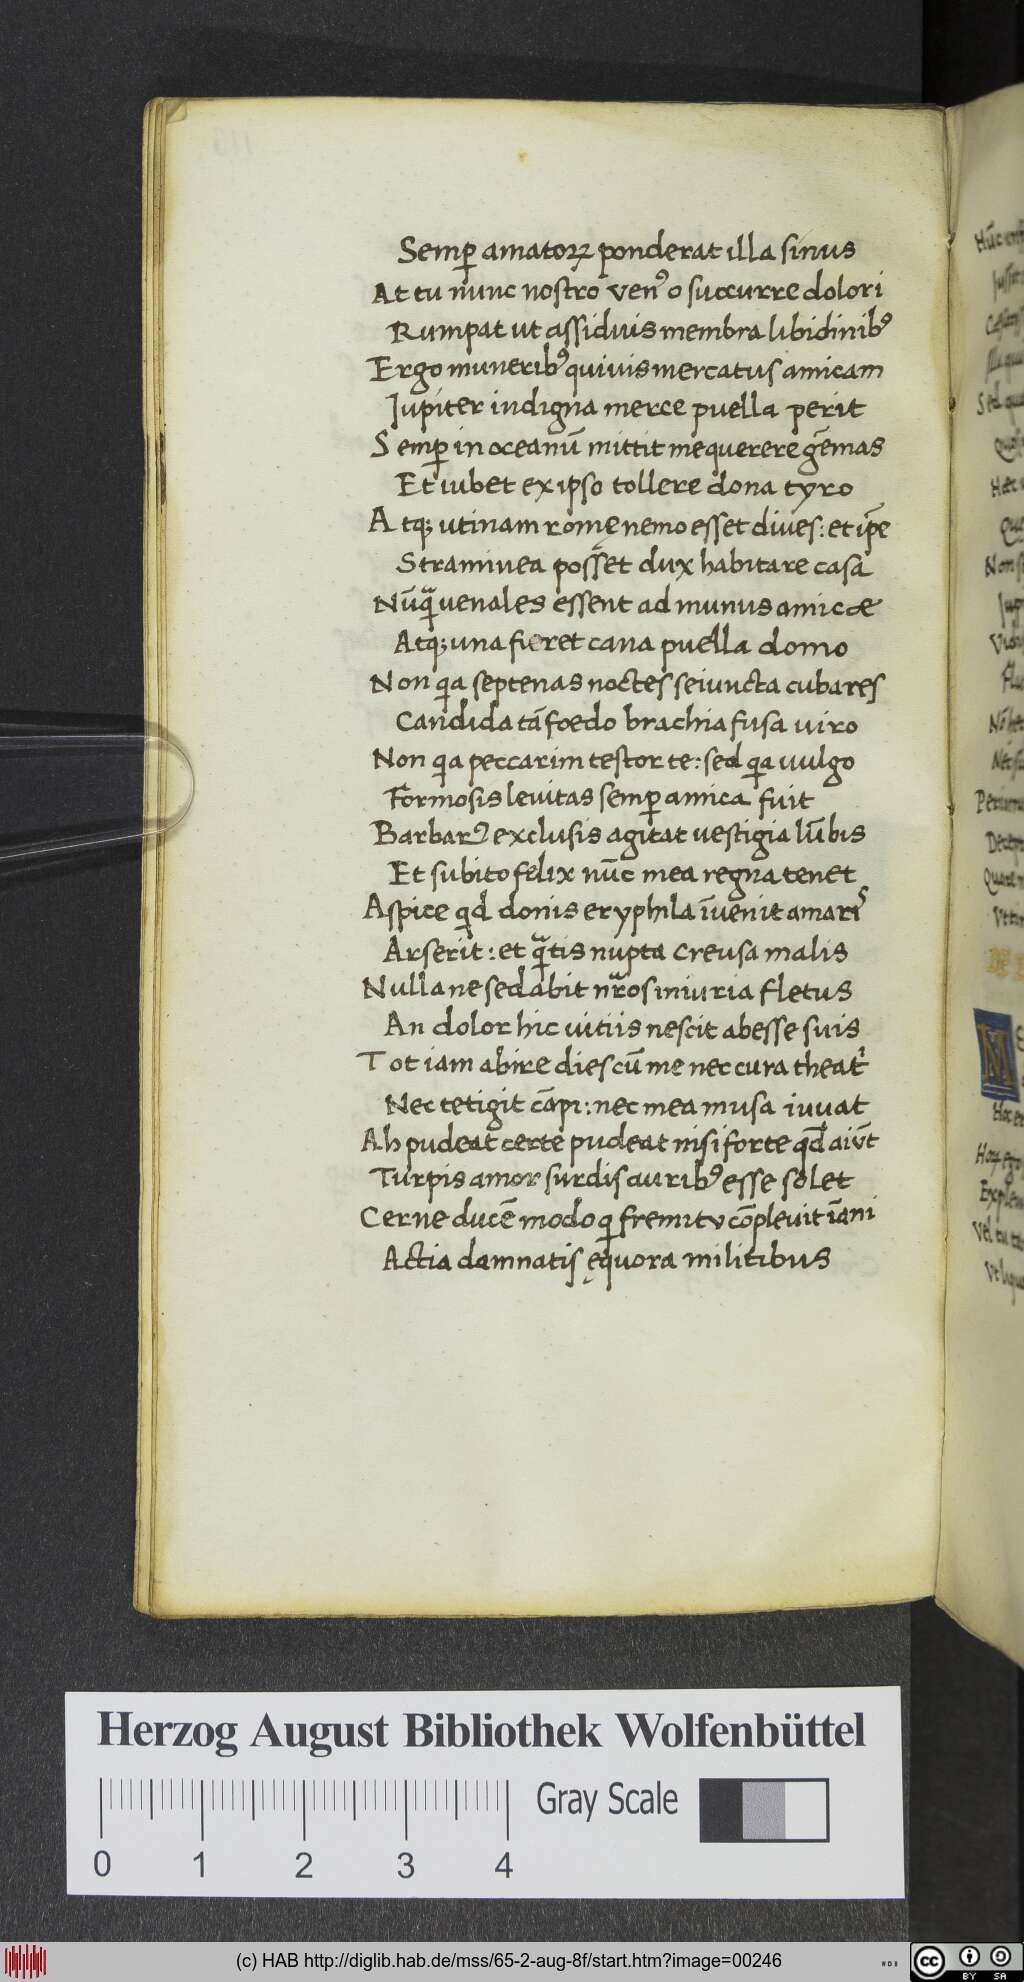 Semꝑ amatoꝝ ponderat illa sinus
At tu nunc nostro venꝰ o succurre dolori
Rumpat ut assiduis membra libidinibꝰ
Ergo muneribꝰ quiuis mercatus amicam
Jupiter indigna merce puella perit
Semꝑ in oceanū mittit me querere gēmas
Et iubet ex ipso tollere dona tyro
Atqꝫ utinam romę nemo esset diues: et ip̄e
Straminea posset dux habitare casa
Nūqᷓ uenales essent ad munus amicæ
Atqꝫ una fieret cana puella domo
Non qͥa septenas noctes seiuncta cubares
Candida tā foedo brachia fusa uiro
Non qͥa peccarim testor te: sed qͥa uulgo
Formosis leuitas semꝑ amica fuit
Barbarꝰ exclusis agitat uestigia lūbis
Et subito felix nūc mea regna tenet
Aspice qͥd donis eryphila īuenit amarͥˢ
Arserit: et qᷓtis nupta creusa malis
Nulla ne sedabit nr̄os iniuria fletus
An dolor hic uitiis nescit abesse suis
Tot iam abire dies cū me nec cura theatͥ
Nec tetigit cāpi: nec mea musa iuuat
Ah pudeat certe pudeat nisi forte qd̄ aiūt
Turpis amor surdis auribꝰ esse solet
Cerne ducē modo qͥ fremitu cōpleuit īani
Actia damnatis ęquora militibus
Herzog August Bibliothek Wolfenbüttel
Gray Scale
0 1 2 3 4
(c) HAB http://diglib.hab.de/mss/65-2-aug-8f/start.htm?image=00246
cc BY SA